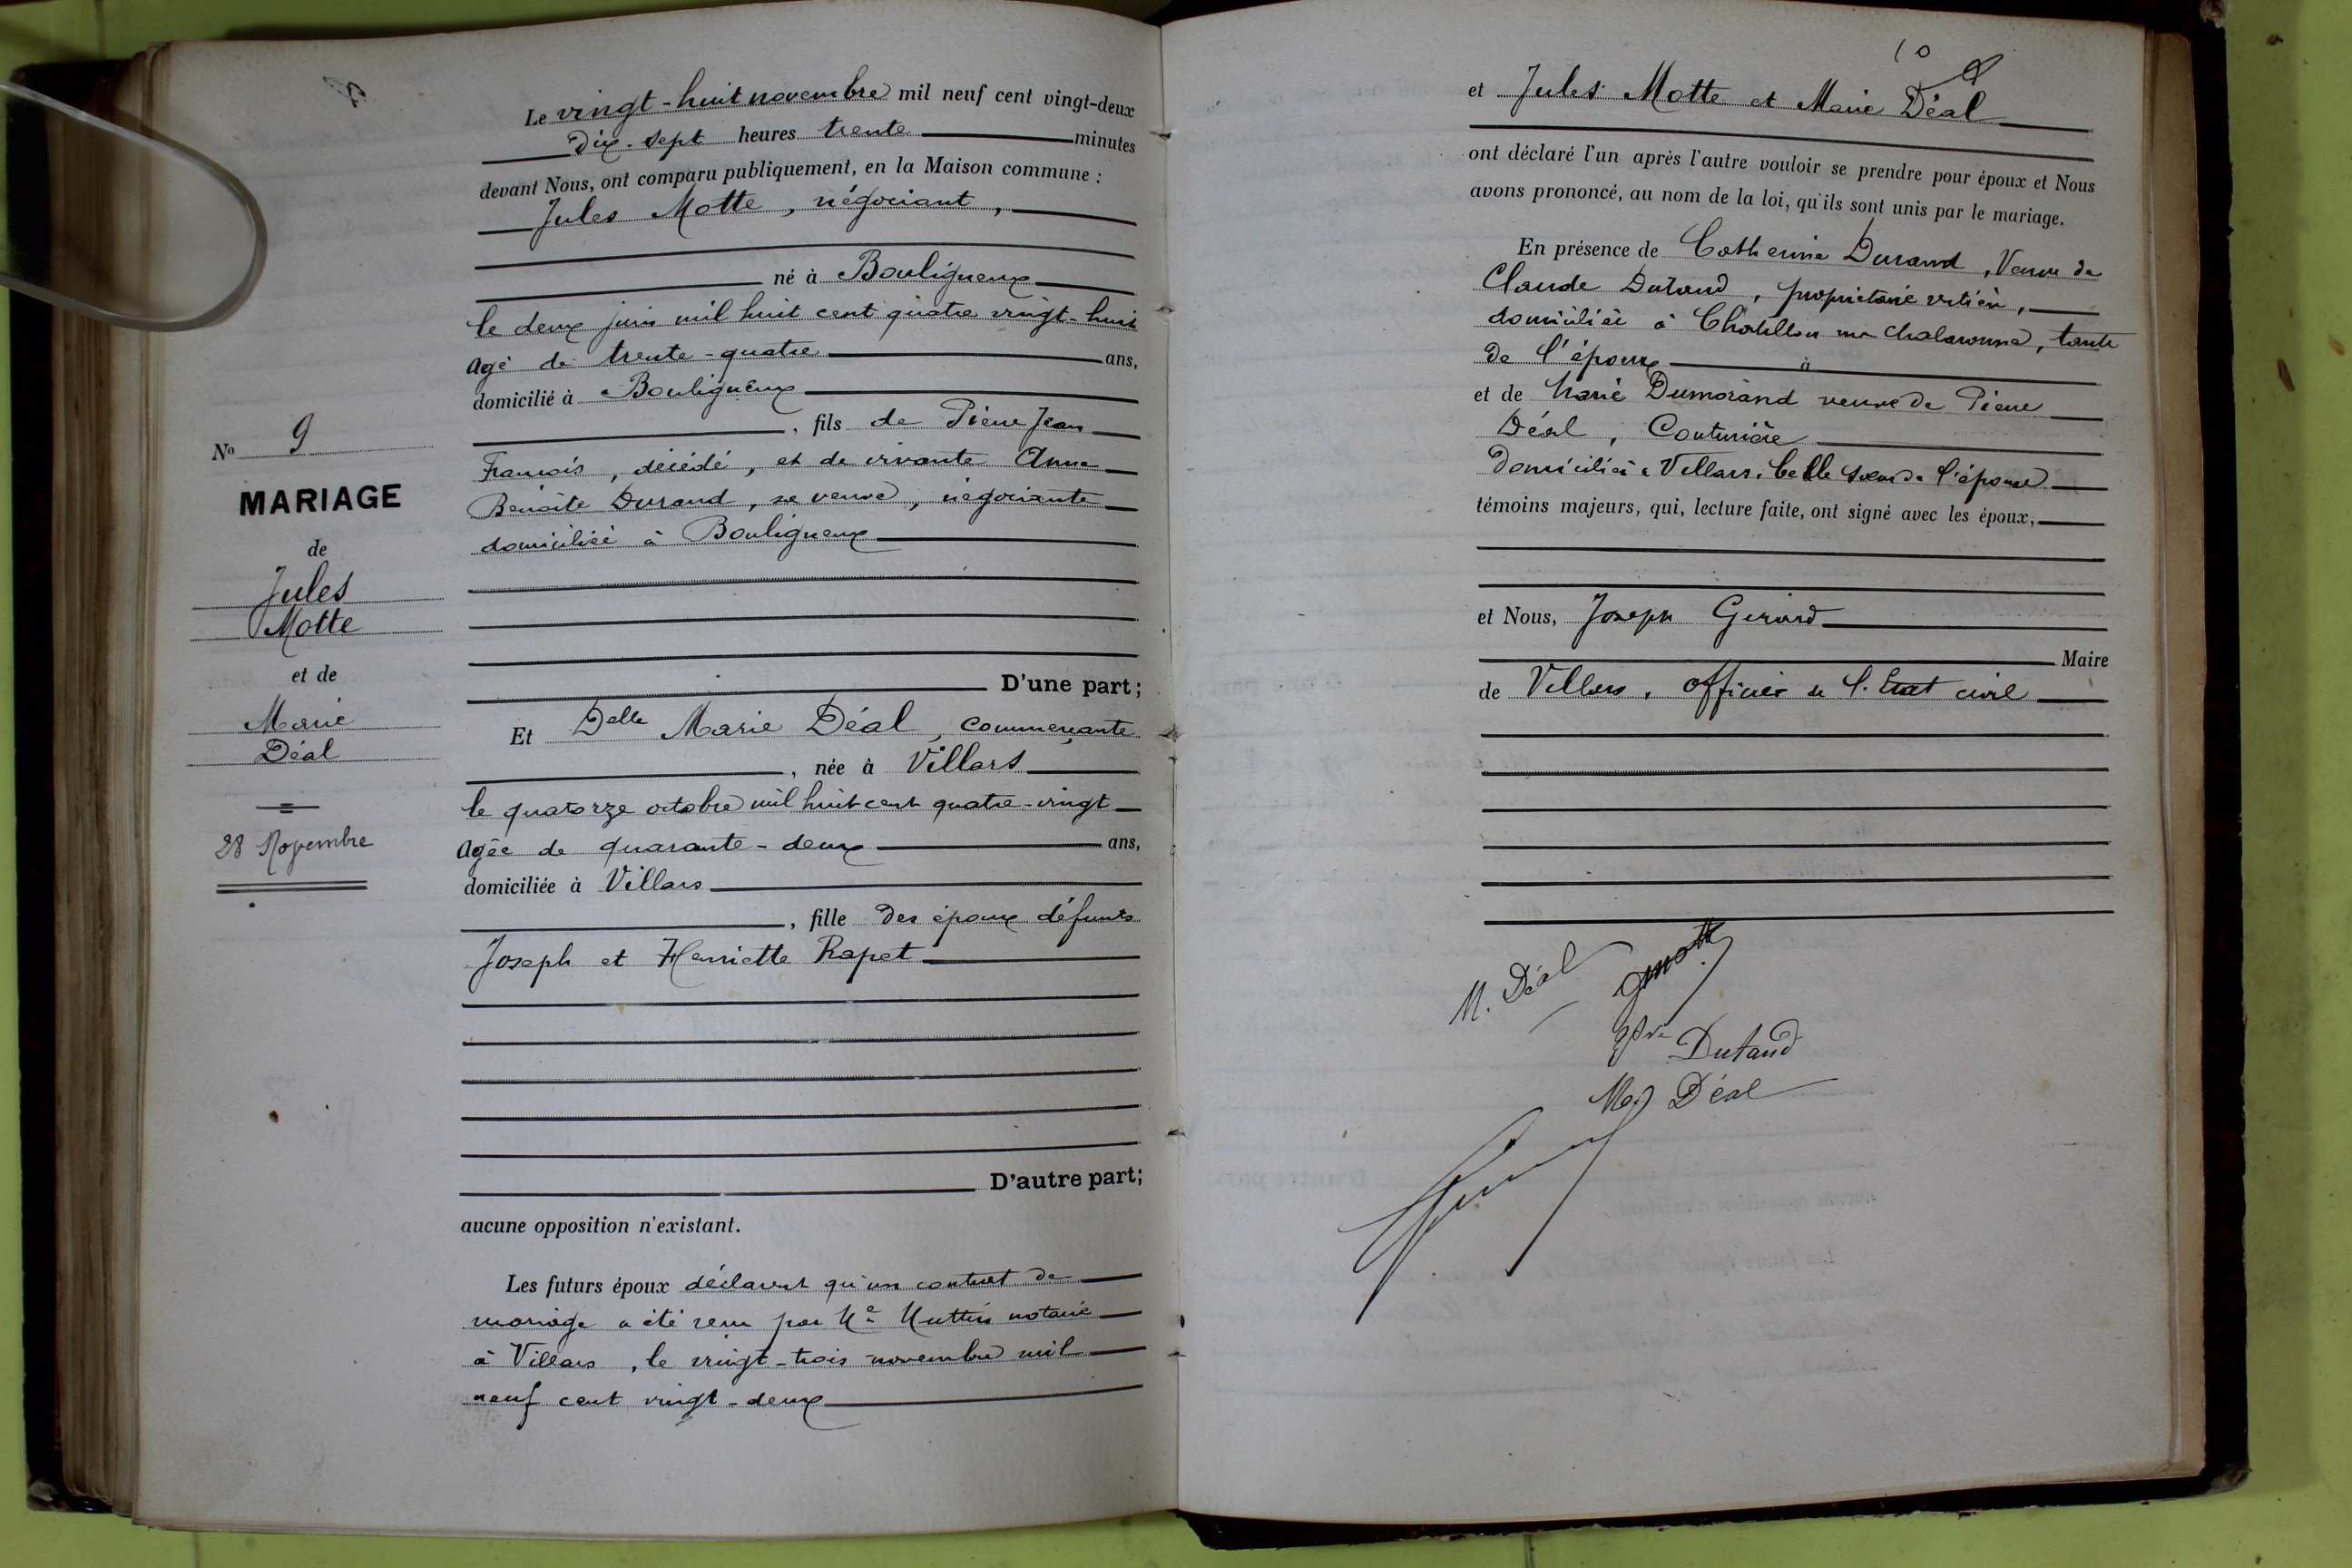 N° 9
MARIAGE
de
Jules
Motte
et de
Marie
Déal
28 Novembre
Le vingt-huit novembre mil neuf cent vingt-deux
dix-sept heures trente minutes
devant Nous, ont comparu publiquement, en la Maison commune :
Jules Motte, négociant,
né à Bouligneux
le deux juin mil huit cent quatre vingt-huit
agé de trente-quatre ans,
domicilié à Bouligneux
, fils de Pierre Jean
François, décédé, et de vivante Anne
Benoite Durand, sa veuve, négociante
domiciliée à Bouligneux
D'une part;
Et Delle Marie Déal, commerçante
, née à Villars
le quatorze octobre mil huit cent quatre-vingt
agée de quarante-deux ans,
domiciliée à Villars
, fille des époux défunts
Joseph et Henriette Rapet
D'autre part;
aucune opposition n'existant.
Les futurs époux déclarent qu'un contrat de
mariage a été reçu par Me Muttin notaire
à Villars, le vingt-trois novembre mil
neuf cent vingt-deux
10
et Jules Motte et Marie Déal
ont déclaré l'un après l'autre vouloir se prendre pour époux et Nous
avons prononcé, au nom de la loi, qu'ils sont unis par le mariage.
En présence de Catherine Durand, Veuve de
Claude Dutand, propriétaire rentière,
domiciliée à Chatillon sur Chalaronne, tante
de l'époux à
et de Marie Dumorand veuve de Pierre
Déal, Couturière
domiciliée à Villars, belle sœur de l'épouse
témoins majeurs, qui, lecture faite, ont signé avec les époux,
et Nous, Joseph Girard
Maire
de Villars, officier de l'Etat civil
M. Déal
J Motte
Dutand
Déal